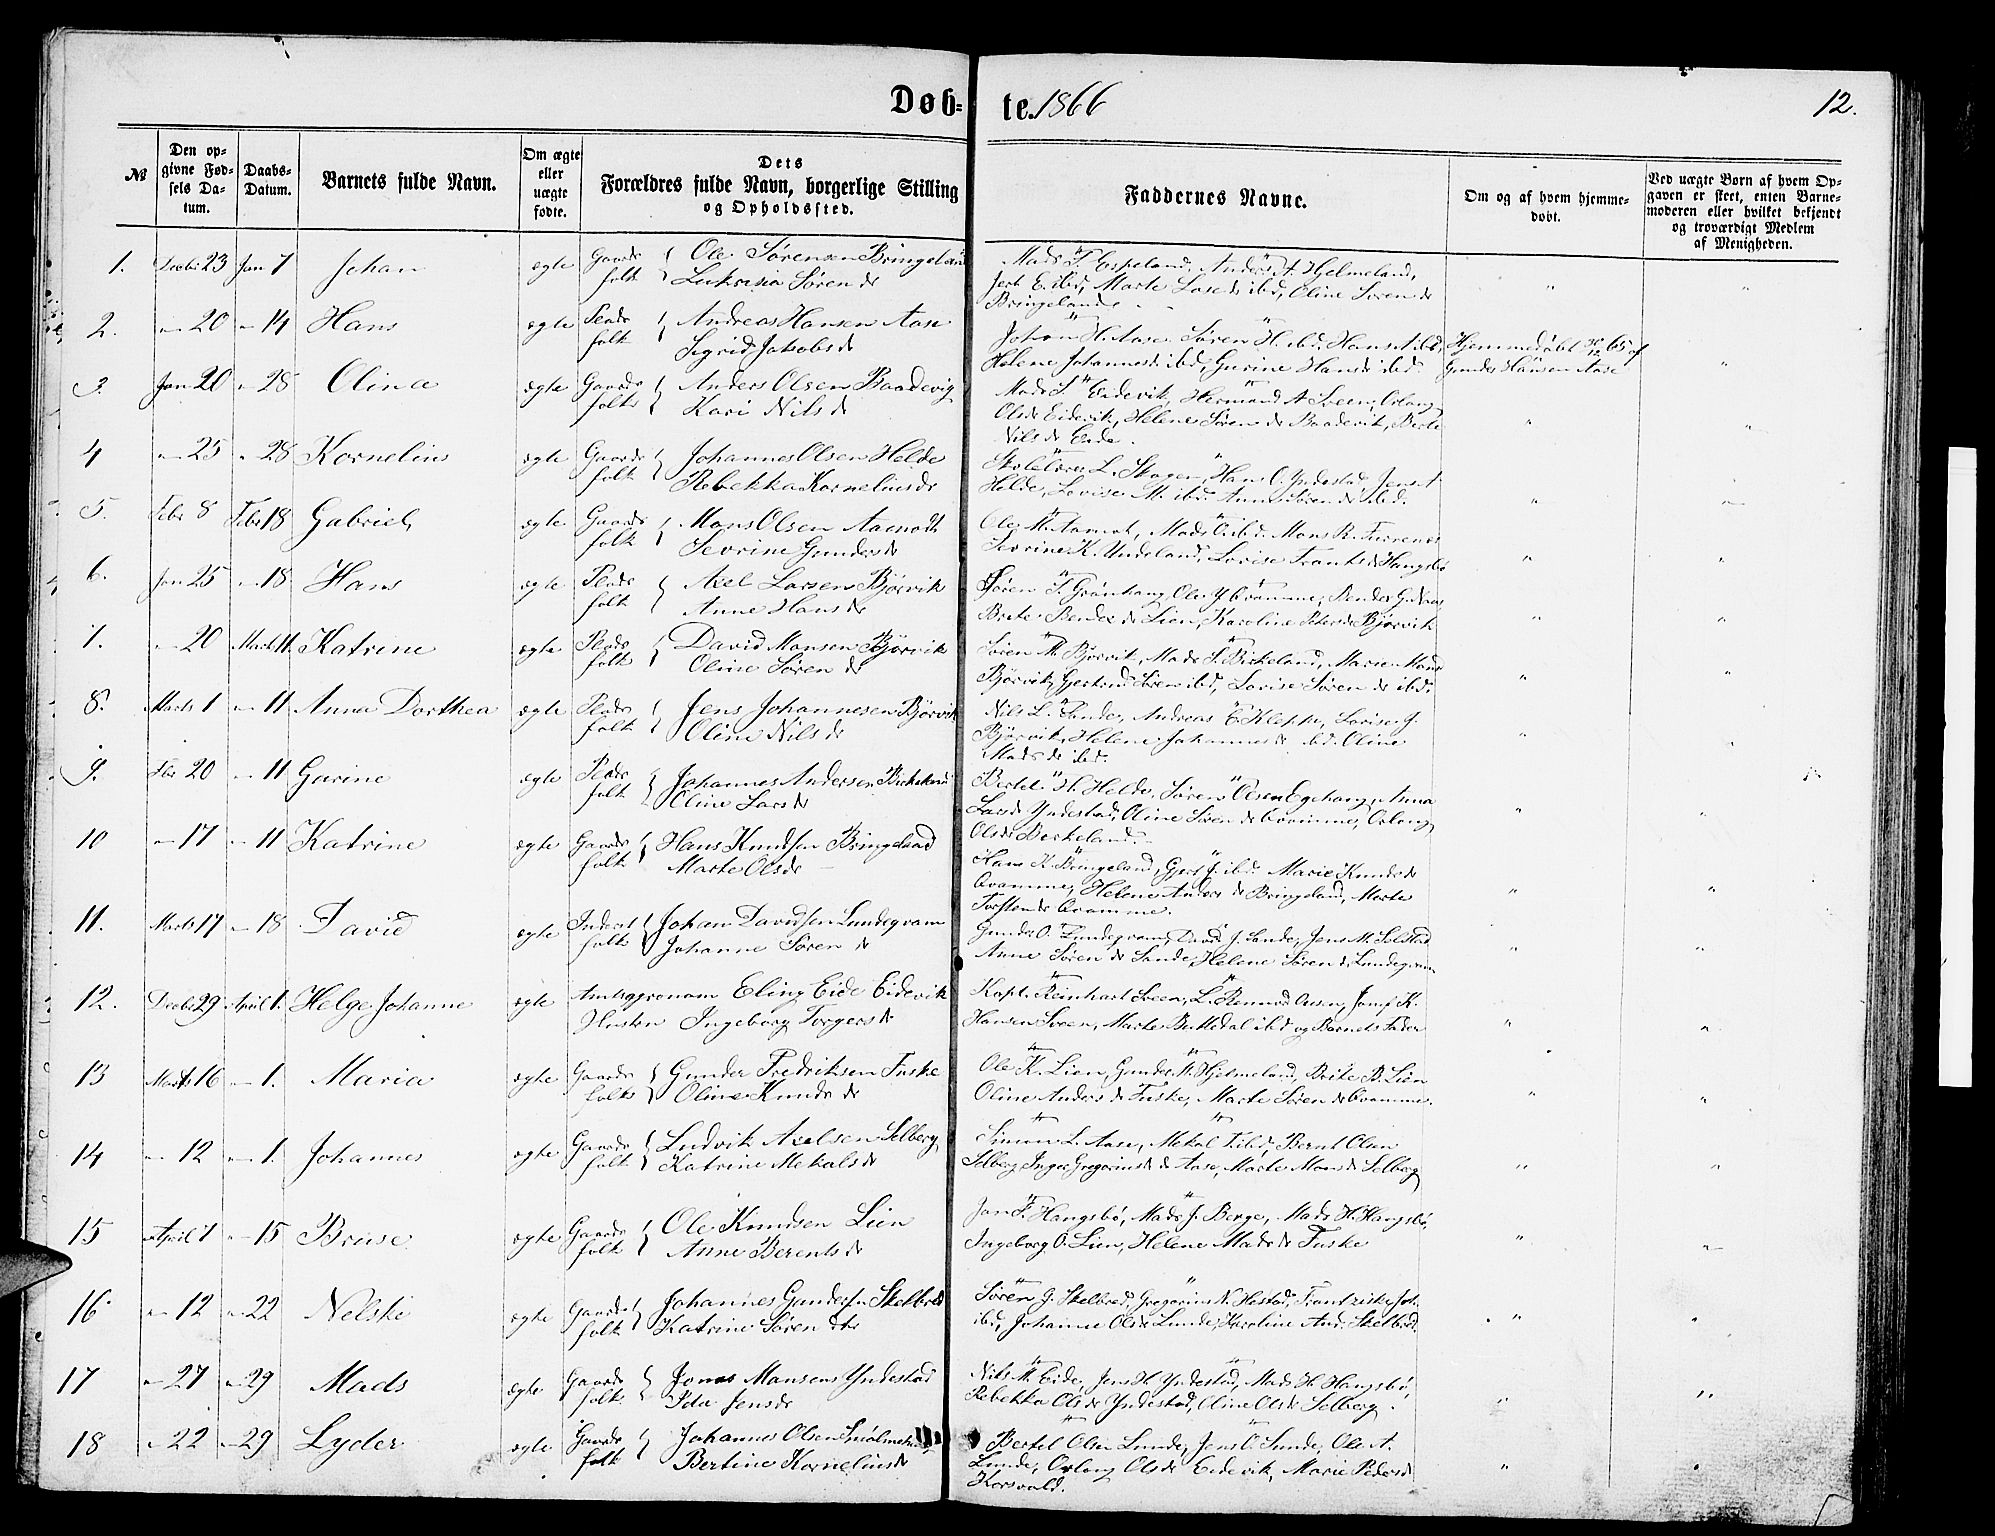 Døb-te. 1866
12.
№
Den opgivne Fødsels Datum.
Daabs-Datum.
Barnets fulde Navn.
Om ægte eller uægte fødte.
Dets Forældres fulde Navn, borgerlige Stilling og Opholdssted.
Faddernes Navne.
Om og af hvem hjemmedøbt.
Ved uægte Børn af hvem Opgaven er skeet, enten Barnemoderen eller hvilket bekjendt og troværdigt Medlem af Menigheden.
1. Decbr 23 Jan 7 Johan ægte Gaardfolk Ole Sørensen Bringeland
Lukrisia Sørendr
Mads T. Espeland, Anders A. Hjelmeland,
Bringeland
2. " 20 " 14 Hans ægte Pladsfolk Andreas Hansen Aase
Sigrid Jakobsdr
Johan H. Aase, Søren H. ibd, Hans A. ibd, Hjemmedøbt 65 af
Helene Johannesdr ibd, Gurine Hansdr ibd. Gunder Hansen Aase
3. Jan 20 " 28 Olina ægte Gaardfolk Anders Olsen Baadevig
Kari Nilsdr
Mads S. Eidevik, Hermand A. Sveen, Orlaug
Olsdr Eidevik, Helene Sørendr Baadevik, Berte
Nilsdr Eide.
4 " 25 " 28 Kornelius ægte Gaardfolk Johannes Olsen Helde
Rebekka Korneliusdr
Skolelærer L. Skogen, Hans O. Yndestad, Jens A.
Helde, Lovise M. ibd. Anne Sørendr ibd.
5. Febr 8 Febr 18 Gabriel ægte Gaardfolk Mons Olsen Aamodt
Sevrine Gundersdr
Ole M. Aamot, Mads O. ibd. Mons R. Furenes
Sevrine K. Undeland, Lovise Frantsdr Hangsbø
6. Jan 25 " 18 Hans ægte Pladsfolk Axel Larsen Bjørvik
Anne Hansdr
Søren T. Grønhaug, Ole J. Qvamme,
Brite Bendixdr Lien, Karoline Petersdr Bjørvik
7. " 20 Marts 11 Katrine ægte Pladsfolk David Monsen Bjørvik
Oline Sørendr
Søren M. Bjørvik, Mads S. Birkeland, Marie Monsdr
Bjørvik, Gjertrud Søren ibd, Lovise Sørendr ibd.
8. Marts 1 " 11 Anna Dorthea ægte Pladsfolk Jens Johannesen Bjørvik
Oline Nilsdr
Nils L. Sande, Andreas E. Kleppe, Lovise J.
Bjørvik, Helene Johannesdr ibd. Oline
Madsdr ibd.
9. Fbr 20 " 11 Gurine ægte Pladsfolk Johannes Andersen Birkeland
Oline Larsdr
Bertel H. Helde, Søren Olsen Egehaug, Anna
Larsdr Yndestad, Oline Sørendr Qvamme, Orlaug
Olsdr Birkeland.
10 " 17 " 11 Katrine ægte Gaardfolk Hans Knudsen Bringeland
Marte Olsdr
Hans K. Bringeland, Gjert J. ibd. Marie Knudsdr
Qvamme, Helene Andersdr Bringeland, Marte
Torstendr Qvamme.
11. Marts 17 " 18 David ægte Inderstfolk Johan Davidsen Lundegram
Johanne Sørendr
Gunder O. Lundegram, David J. Sande, Jens M. Solstad
Anne Sørendr Sande, Helene Sørendr Lundegram
12. Decbr 29 April 1. Helge Johanne ægte Amtsagronom Eling Eide Eidevik
Hustru Ingeborg Torgersdr
Kapt. Reinhart Sveen,
Hansen Sveen, Marte Bekkedal ibd og Barnets Fader
13 Marts 16 " 1. Maria ægte Gaardfolk Gunder Fredriksen Fuske
Oline Knudsdr
Ole K. Lien, Gunder M. Hjelmeland, Brite B. Lien
Oline Andersdr Fuske, Marte Sørendr Qvamme.
14 " 12 " 1. Johannes ægte Gaardfolk Ludvik Axelsen Selberg
Katrine Mekalsdr
Simon L. Aase, Mekal T. ibd, Bernt Olsen
Selberg, Inger Gregoriusdr Aase, Marte Monsdr Selberg
15 April 7 " 15 Bruse ægte Gaardfolk Ole Knudsen Lien
Anne Berentsdr
Jon F. Hangsbø, Mads J. Berge, Mads H. Hangsbø,
Ingeborg O. Lien, Helene Madsdr Fuske
16 " 12 " 22 Nelski ægte Gaardfolk Johannes Gundersen Skelbred
Katrine Sørendtr
Søren G. Skelbred, Gregorius N. Hestad, Frantziska Joh.
ibd, Johanne Olsdr Lunde, Karoline And. Skelbred.
17 " 27 " 29 Mads ægte Gaardfolk Jonas Monsen Yndestad
Ida Jensdr
Nils M. Eide, Jens H. Yndestad, Mads H. Hangsbø,
Rebekka Olsdr Yndestad, Oline Olsdr Selberg.
18 " 22 " 29 Lyder ægte Gaardfolk Johannes Olsen
Bertine Korneliusdr
Bertel Olsen Lunde, Jens O. Lunde, Ole A.
Lunde, Orlaug Olsdr Eidevik, Marie Pedersdr
Korsvold.